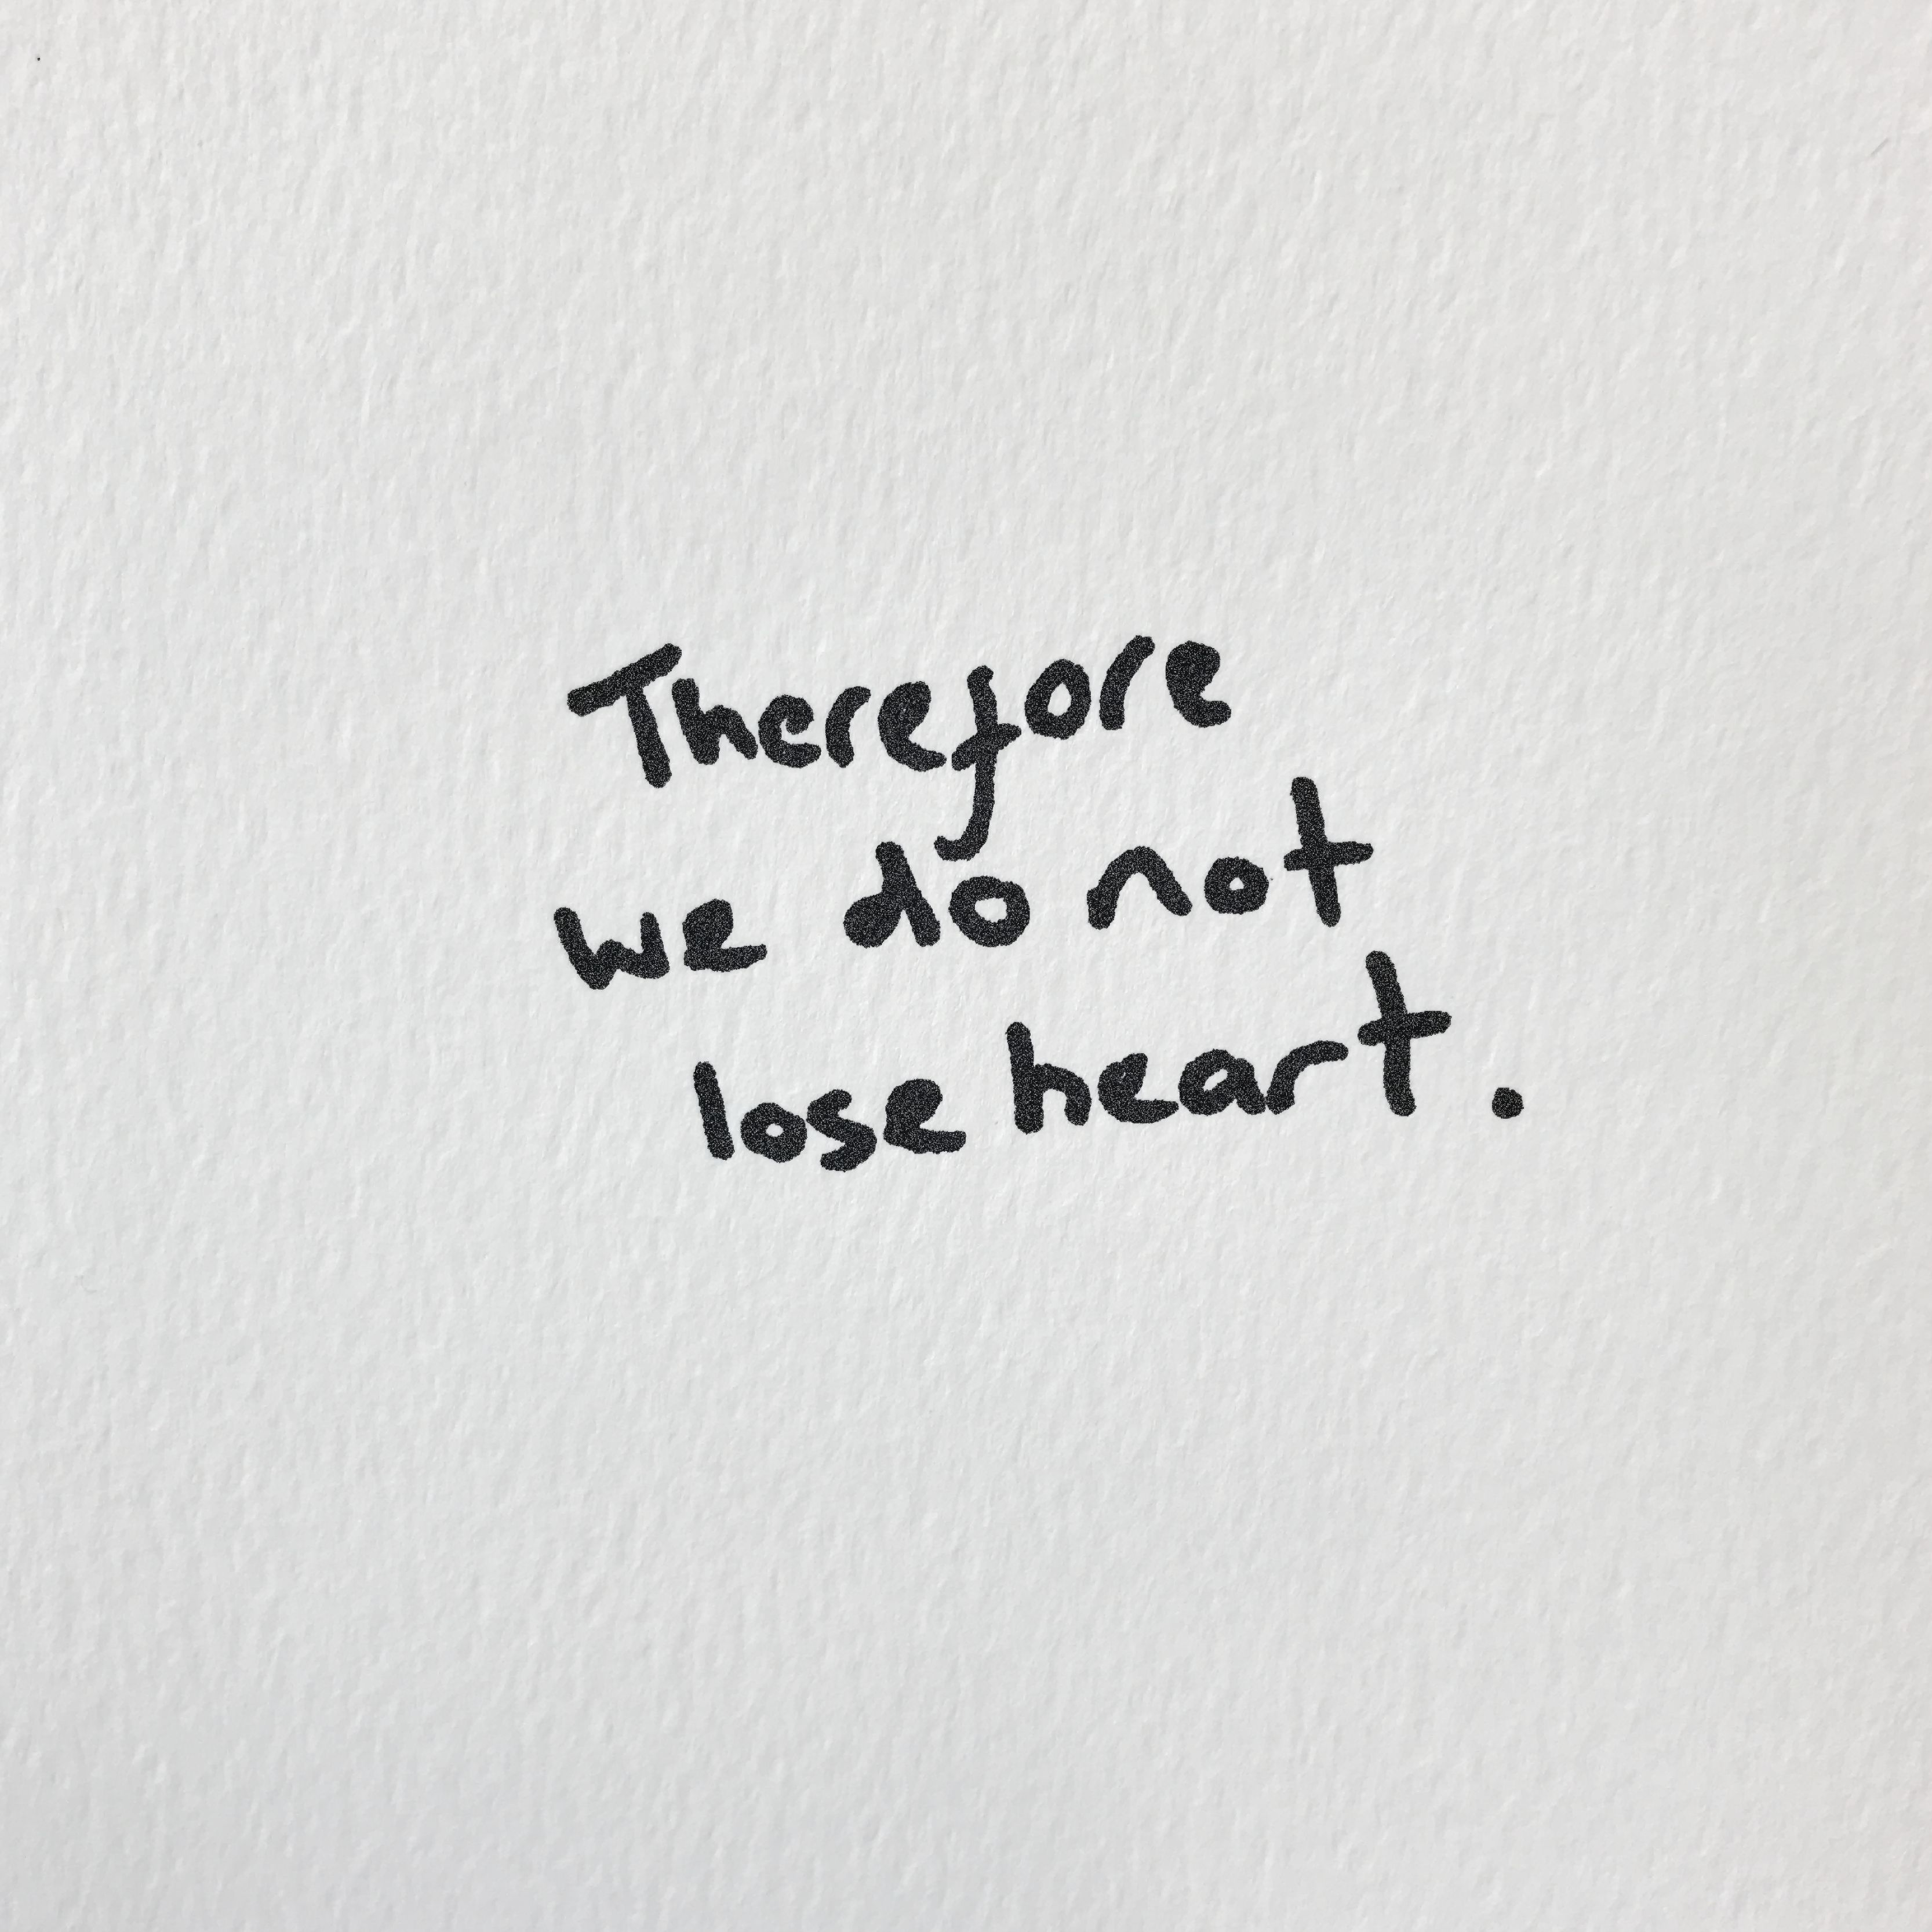 Therefore
we do not
lose heart.